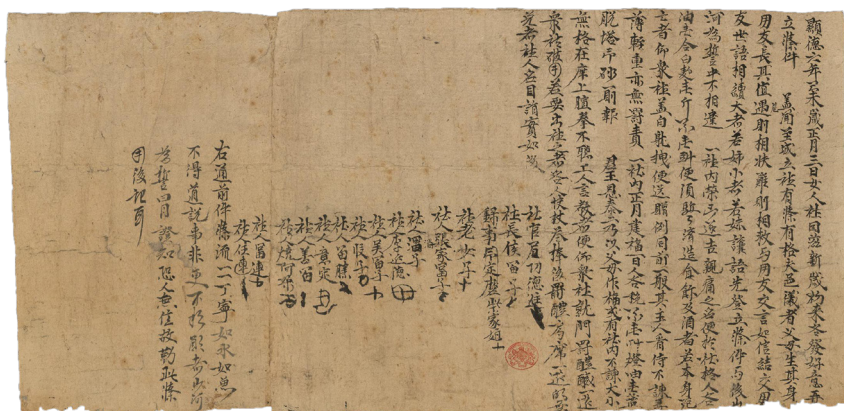 顯德六年己未歲正月三日女人社因滋新歲初來各發好意再
立條件 蓋聞至城立社有條有格夫邑儀者父母生其身
朋友長其值遇危則相扶難則相救與朋友交言如信結交朋
友世語相續大者若姊小者若妹讓語先登立條件與後山
河為誓中不相違 一社內榮凶逐吉親痛之名便於社格人各
油壹合白麵壹斤粟壹斗便須驅驅濟造食飯及酒者若本身死
亡者仰眾社蓋白躭拽便送贈例同前一般其主人看侍不諫厚
薄輕重亦無罰責 一社內正月建福一日人各稅粟壹斗燈油壹盞
脫塔印砂一則報 君王恩泰二乃以父母作福或有社內不諫大小
無格在席上喧拳不聽上人言教者便仰眾社就門罰醴醎一筵
眾社破用若要出社之者各人決杖叁棒後罰醴局席一筵的無
免者社人名目詣實如後
社官尼功德進
社長侯富子
錄事印定磨柴家娘
社老女子
社人張家富子
社人渦子
社人李延德
社人吳富子
社人段子
社人富勝
社人意定
社人善富
社人燒阿朵
社人富連
社人住連
右通前件條流一一丁寧如水如魚
不得道說事非更不於願者山河
為誓日月證知恐人無信故勒此條
用後記耳